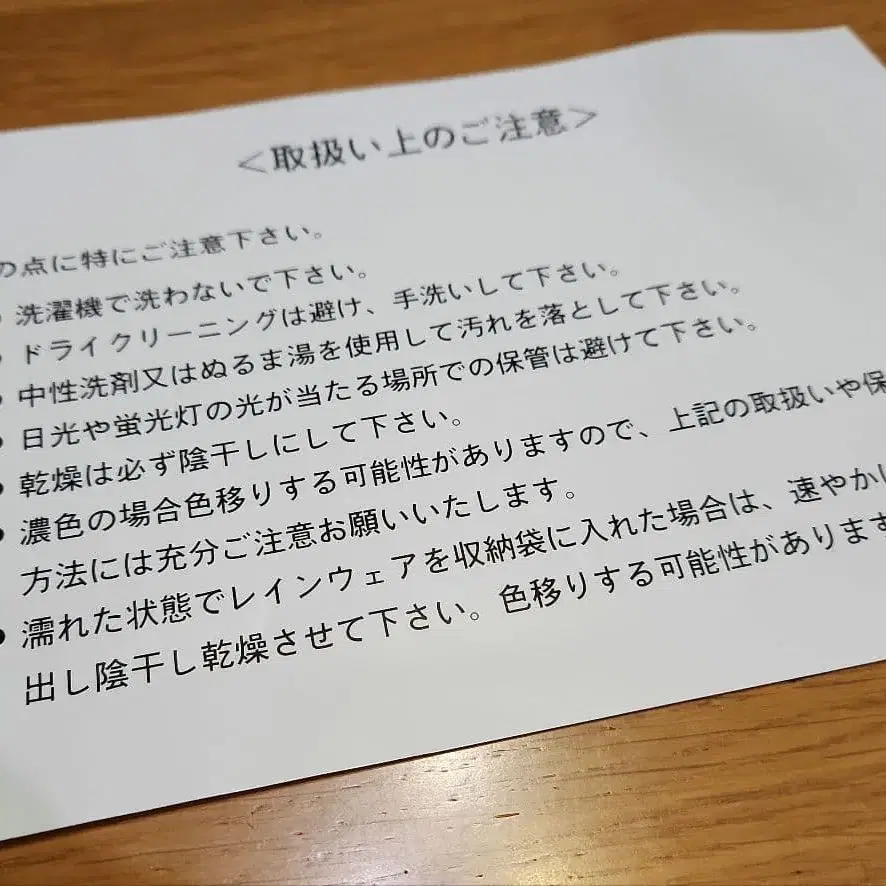 <取扱い上のご注意>
の点に特にご注意下さい。
洗濯機で洗わないで下さい。
ドライクリーニングは避け、手洗いして下さい。
中性洗剤又はぬるま湯を使用して汚れを落として下さい。
日光や蛍光灯の光が当たる場所での保管は避けて下さい。
乾燥は必ず陰干しにして下さい。
濃色の場合色移りする可能性がありますので、上記の取扱いや保
方法には充分ご注意お願いいたします。
濡れた状態でレインウェアを収納袋に入れた場合は、速やかに
出し陰干し乾燥させて下さい。色移りする可能性があります